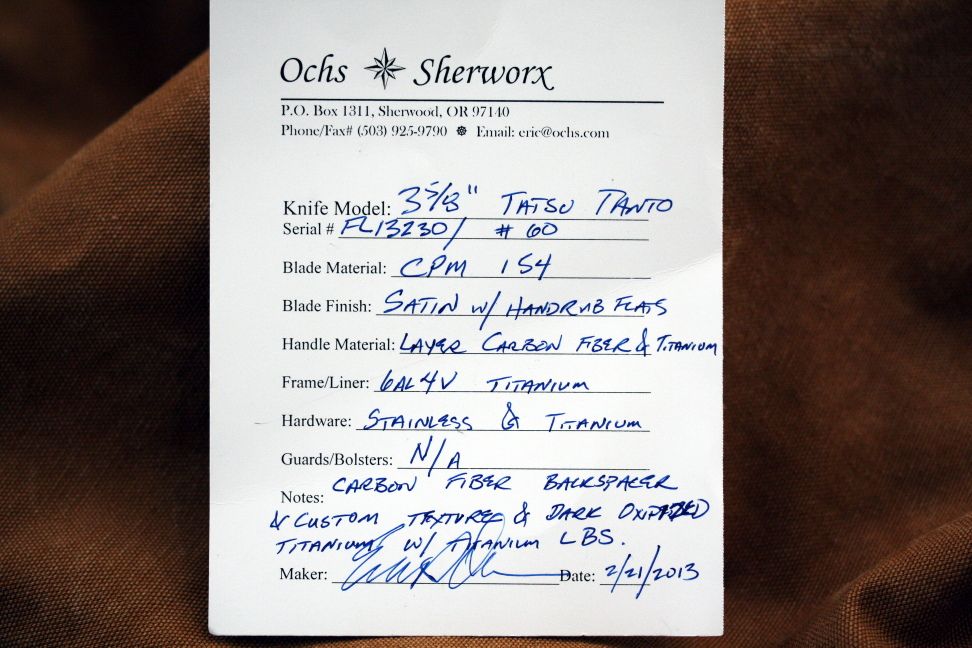 Ochs Sherworx
P.O. Box 1311, Sherwood, OR 97140
Phone/Fax# (503) 925-9790 Email: eric@ochs.com
Knife Model: 3 5/8" TATSU TANTO
Serial # FL13230/ #60
Blade Material: CPM 154
Blade Finish: SATIN W/ HANDRUB FLATS
Handle Material: LAYER CARBON FIBER & TITANIUM
Frame/Liner: 6AL4V TITANIUM
Hardware: STAINLESS & TITANIUM
Guards/Bolsters: N/A
Notes: CARBON FIBER BACKSPACER
& CUSTOM TEXTURE & DARK OXIDIZED
TITANIUM W/ TITANIUM LBS.
Maker: Date: 2/21/2013